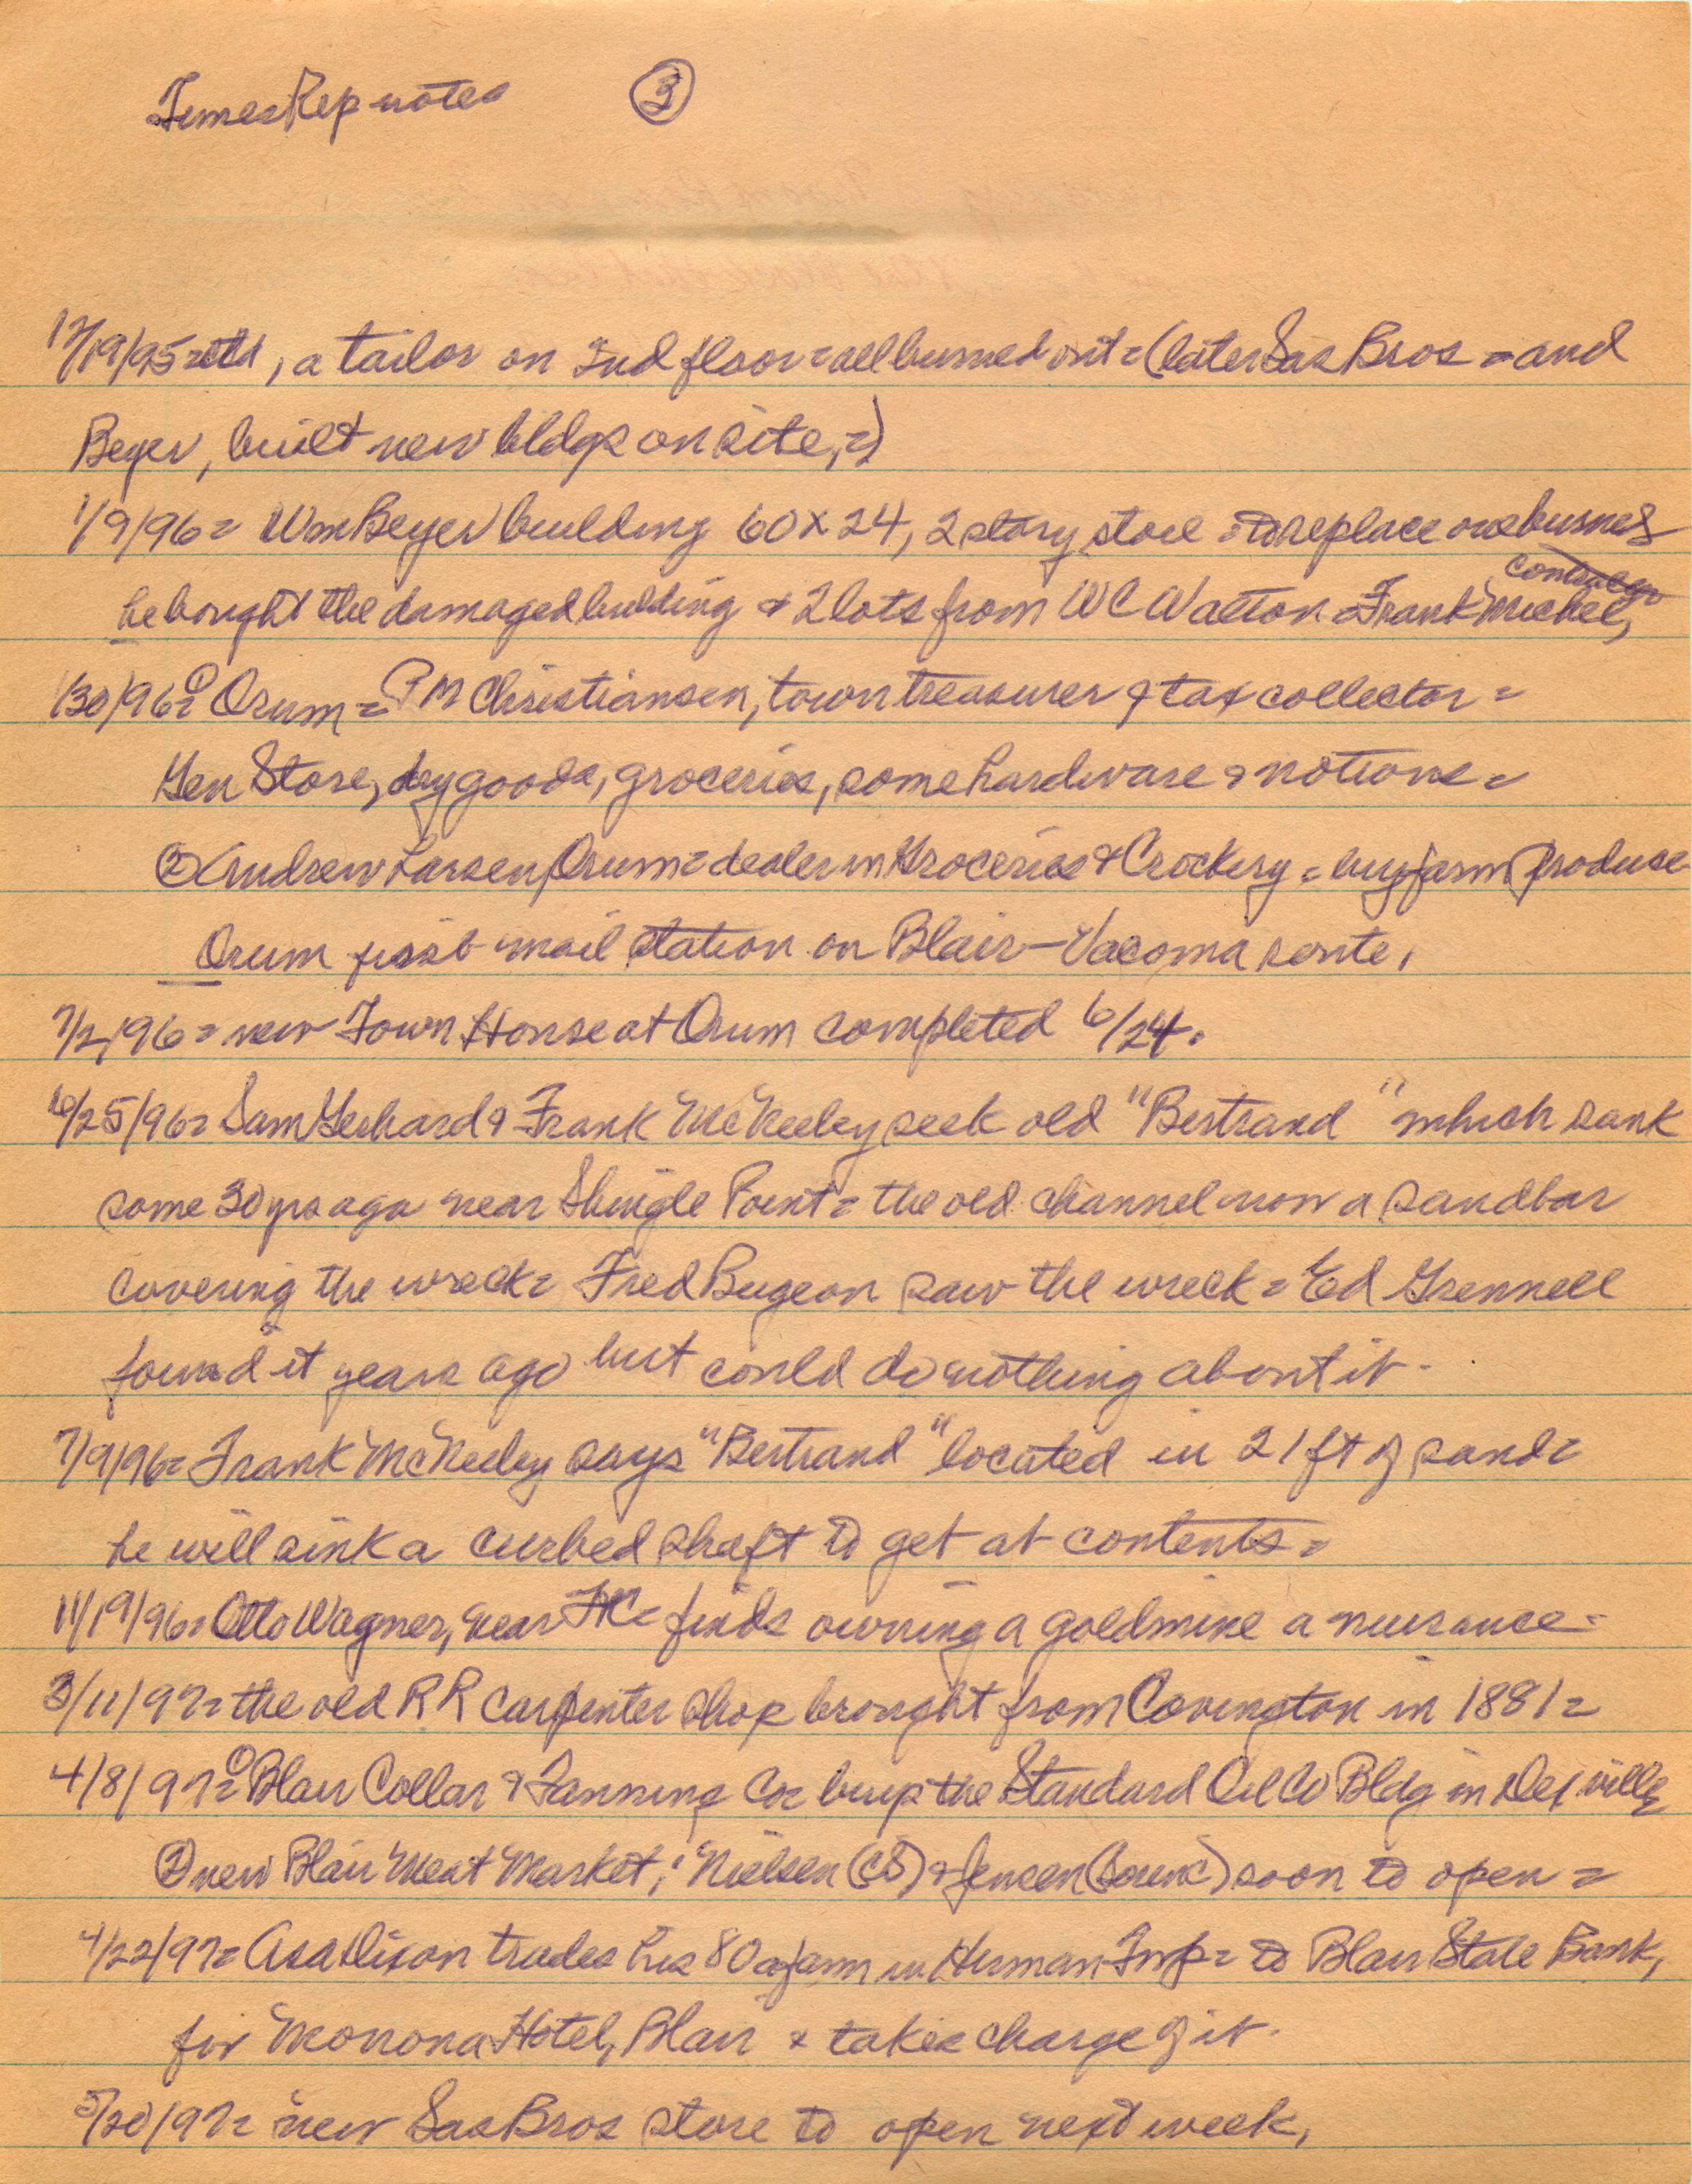 TimesRep notes ③
12/19/95=ctd, a tailor on 2nd floor=all burned out=(later Sas Bros = and
Beyer, built new bldgs on site,=)
1/9/96= Wm Beyer building 60x24, 2 story store to replace one
he bought the damaged building & 2 lots from WC Walton = Frank Michel,
1/30/96=① Orum = PM Christiansen, town treasurer & tax collector =
Gen Store, dry goods, groceries, some hardware & notions =
② Andrew Larsen, Orum = dealer in Groceries & Crockery = buy farm produce
Orum first mail station on Blair-Vacoma route,
7/2/96= new Town House at Orum completed 6/24.
6/25/96= Sam Gerhard & Frank McNeeley seek old "Bertrand" which sank
some 30 yrs ago near Shingle Point = the old channel now a sandbar
covering the wreck = Fred Bugeon saw the wreck = Ed Grennell
found it years ago but could do nothing about it.
7/9/96= Frank McNeeley says "Bertrand" located in 21 ft of sand=
he will sink a curbed shaft to get at contents =
11/19/96= Otto Wagner, near = finds owning a goldmine a nuisance =
3/11/97= the old RR Carpenter shop brought from Covington in 1881=
4/8/97=① Blair Collar & Fanning Co= buys the Standard Oil Co Bldg in
② new Blair Meat Market; Nielsen (CS) & Jensen soon to open =
4/22/97= Asa Dixon trades his 80a farm in Herman Twp= to Blair State Bank,
for Monona Hotel, Blair & takes charge of it.
5/20/97= new Sas Bros store to open next week,